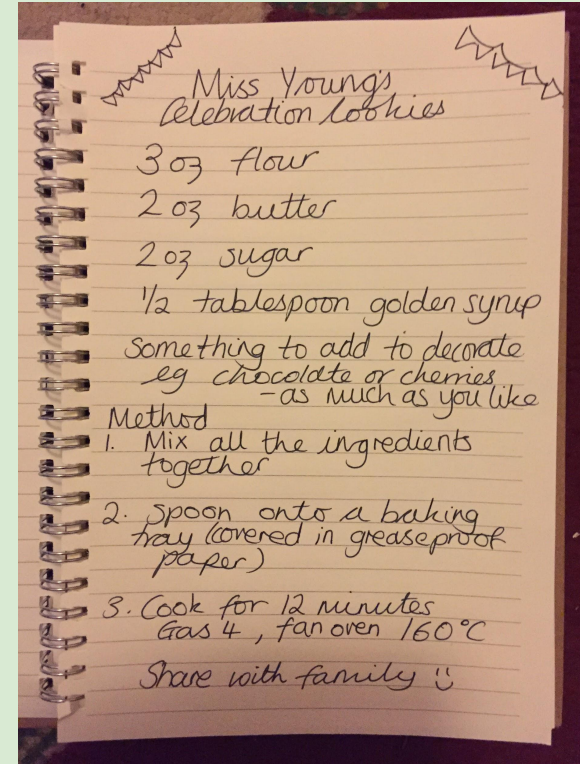 Miss Young's
Celebration Cookies
3 oz flour
2 oz butter
2 oz sugar
1/2 tablespoon golden syrup
Something to add to decorate
eg chocolate or cherries
- as much as you like
Method
1. Mix all the ingredients
together
2. Spoon onto a baking
tray (covered in greaseproof
paper)
3. Cook for 12 minutes
Gas 4, fan oven 160°C
Share with family :)